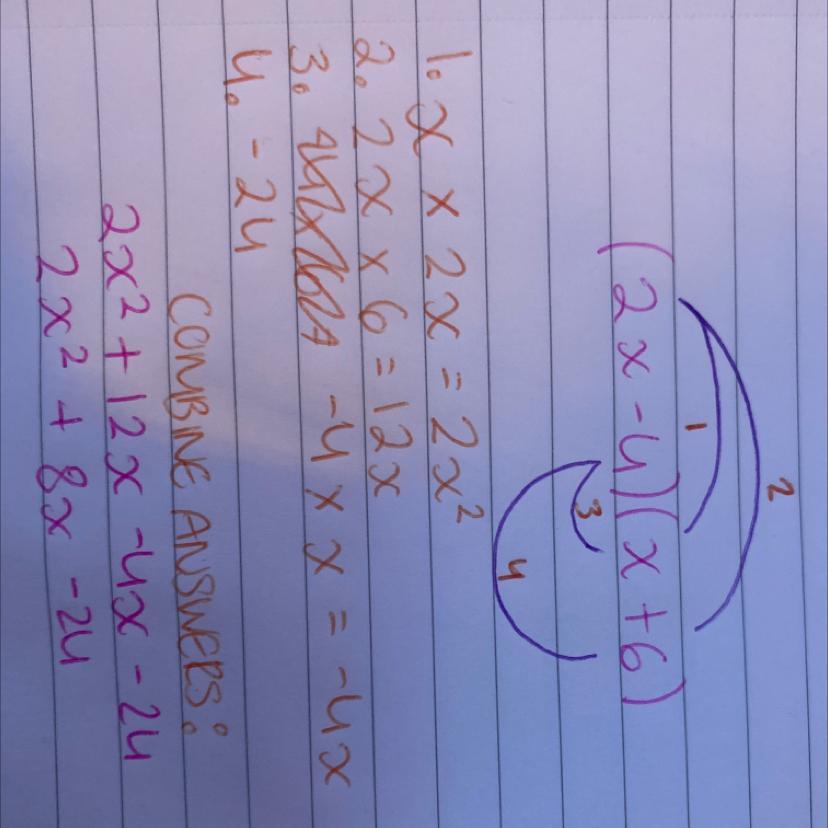 2
1
(2x-4)(x+6)
3
4
1. x × 2x = 2x²
2. 2x × 6 = 12x
3. -4 × x = -4x
4. -24
COMBINE ANSWERS:
2x² + 12x -4x - 24
2x² + 8x -24